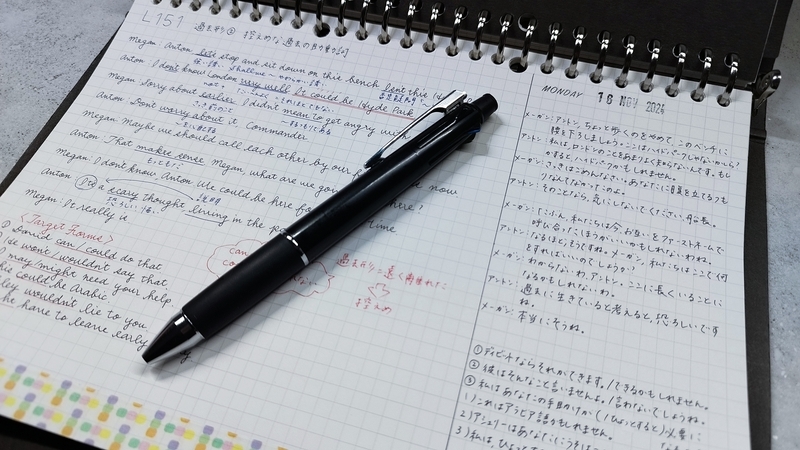 L151 過去形② 控えめな過去の助動詞
Megan: Anton let's stop and sit down on this bench Isn't this
Anton: I don't know London very well It could be Hyde Park
Megan: Sorry about earlier I didn't mean to get angry
Anton: Don't worry about it Commander
Megan: Maybe we should call each other by our
Anton: That makes sense Megan, what are we here?
Megan: I don't know Anton We could be here for time
Anton: It's a scary thought living in the
Megan: It really is
now
<Target Forms>
David can / could do that
He won't / wouldn't say that
may / might need your help
This could be Arabic
wouldn't lie to you
have to leave early
can
過去形=遠く離れた
控えめ
MONDAY 18 NOV 2024
メーガン: アントン、ちょっと歩くのをやめて、このベンチに
腰を下ろしましょう。ここはハイドパークじゃないかしら?
アントン: 私は、ロンドンのことをあまりよく知らないんです。もし
かすると、ハイドパークかもしれません。
メーガン: さっきはごめんなさい。あなたに腹を立てるつも
りなんてなかったのよ。
アントン: そのことなら、気にしないでください、船長。
メーガン: たぶん、私たちは今、お互いをファーストネームで
呼び合ったほうがいいかもしれないわね。
アントン: なるほど、そうですね。メーガン、私たちはここで何
をすればいいのでしょうか?
メーガン: わからないわ、アントン。ここに長くいることに
なるかもしれないわ。
アントン: 過去に生きていると考えると、恐ろしいです
ね。
メーガン: 本当にそうね。
① デイビッドならそれができます。/できるかもしれません。
② 彼はそんなこと言いませんよ。/言わないでしょうね。
③ 私はあなたの手助けが(/ひょっとすると)必要に
1) これはアラビア語かもしれません。
2) アシュリーはあなたにうそは
3) 私は、ひょっと